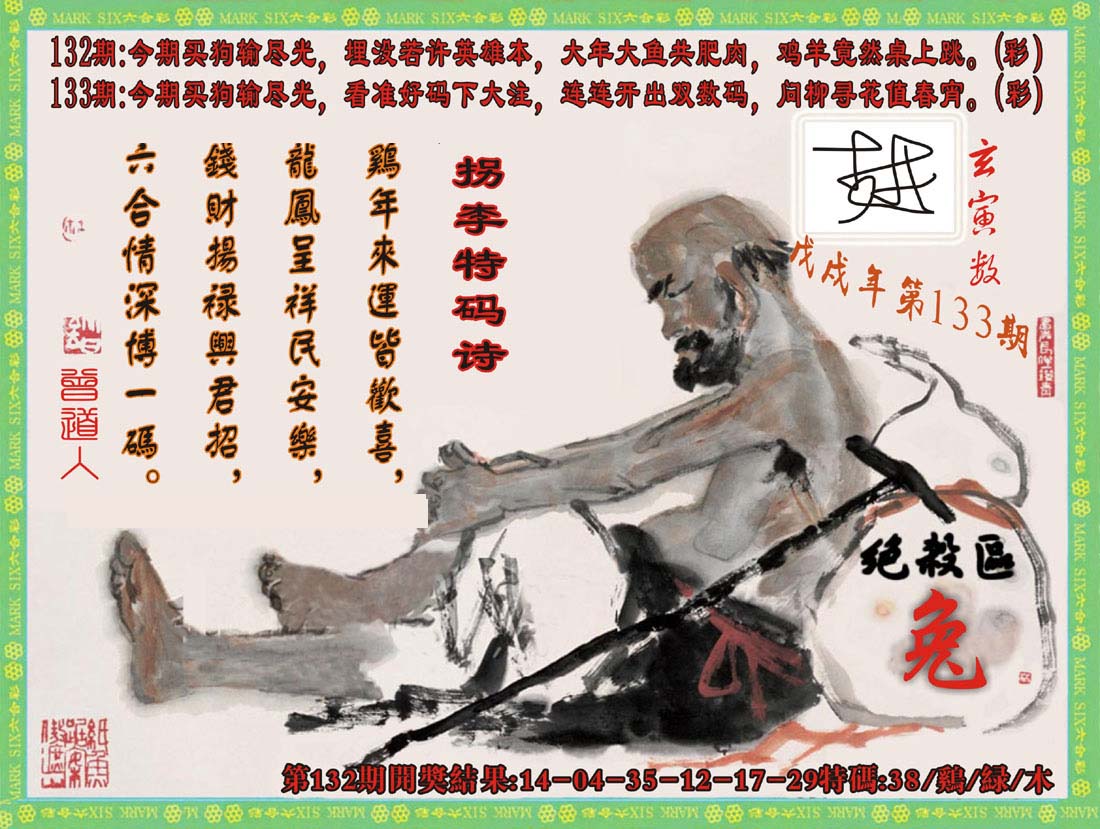 MARK SIX六合彩
132期:今期买狗输尽光，埋没若许英雄本，大年大鱼共肥肉，鸡羊竟然桌上跳。(彩)
133期:今期买狗输尽光，看准好码下大注，连连开出双数码，问柳寻花值春宵。(彩)
玄寅数
戊戌年第133期
拐李特码诗
鷄年來運皆歡喜，
龍鳳呈祥民安樂，
錢財揚禄興君招，
六合情深博一碼。
曾道人
绝殺區
兔
第132期開獎結果:14-04-35-12-17-29特碼:38/鷄/緑/木